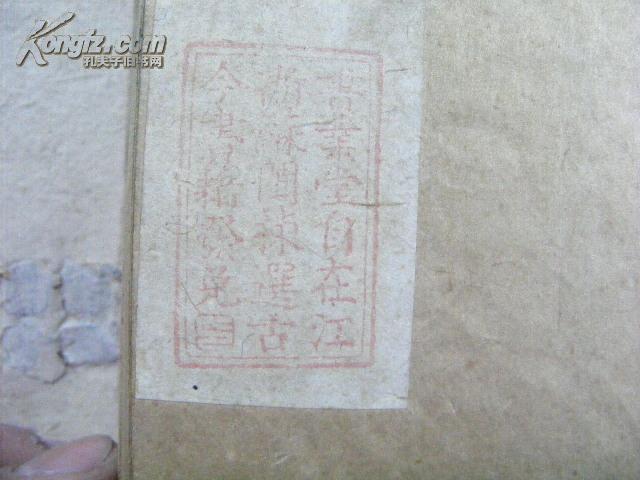 Kongfz.com
孔夫子旧书网
業堂自在江
蘇閩揀選古
今書籍發兌